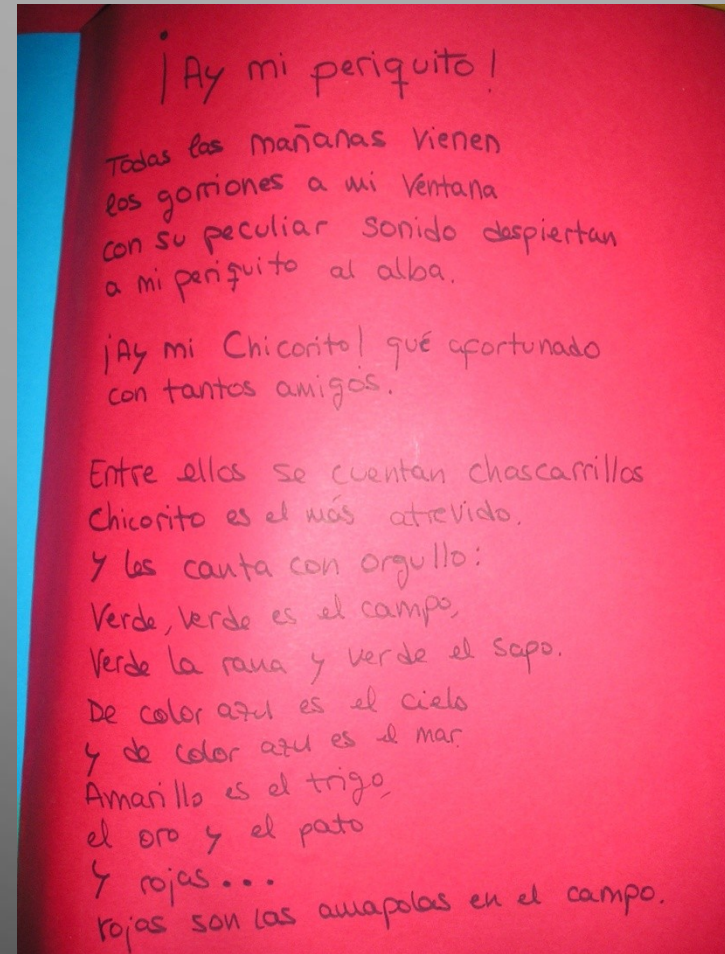 ¡Ay mi periquito!
Todas las mañanas vienen
los gorriones a mi ventana
con su peculiar sonido despiertan
a mi periquito al alba.
¡Ay mi Chicorito! qué afortunado
con tantos amigos.
Entre ellos se cuentan chascarrillos
Chicorito es el más atrevido.
Y les canta con orgullo:
Verde, verde es el campo,
Verde la rana y verde el sapo.
De color azul es el cielo
y de color azul es el mar.
Amarillo es el trigo,
el oro y el pato
Y rojas...
rojas son las amapolas en el campo.